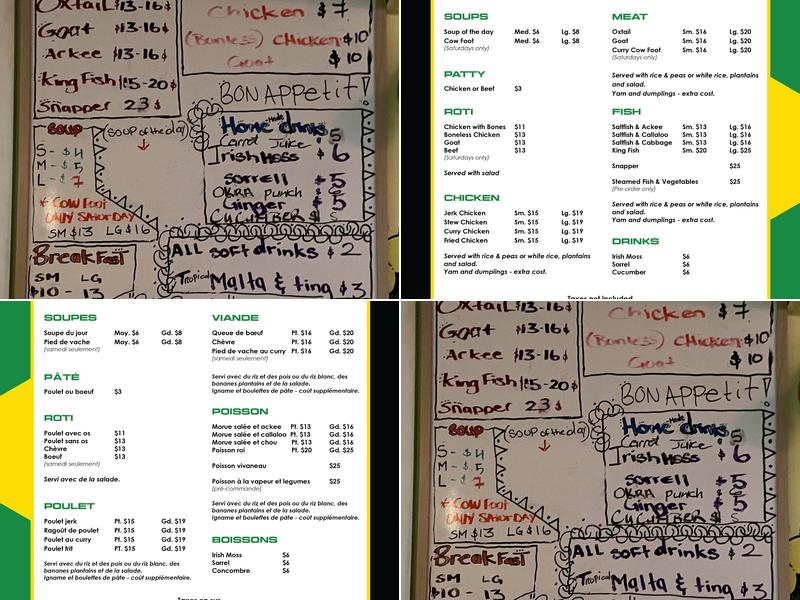 OxtaiL $13-16$
Goat $13-16$
Arkee $13-16$
King Fish $15-20$
Snapper 23$
Chicken $7
(Bonless) CHicken $10
Goat $10
BON APPetit!
Soup
S - $4
M - $5
L - $7
(SOUP of the day)
* Cow Foot
DAily SAtorDAY
SM $13 LG $16
Home Made drinks
Carrot Juice 5
Irish Moss $6
Sorrell $5
OKRA Punch $6
Ginger $5
CUCUMBER $
BreakFast
SM LG
$10 - 13
ALL soft drinks $2
Tropical Malta & ting $3
SOUPS
Soup of the day Med. $6 Lg. $8
Cow Foot Med. $6 Lg. $8
(Saturdays only)
PATTY
Chicken or Beef $3
ROTI
Chicken with Bones $11
Boneless Chicken $13
Goat $13
Beef $13
(Saturdays only)
Served with salad
CHICKEN
Jerk Chicken Sm. $15 Lg. $19
Stew Chicken Sm. $15 Lg. $19
Curry Chicken Sm. $15 Lg. $19
Fried Chicken Sm. $15 Lg. $19
Served with rice & peas or white rice, plantains
and salad.
Yam and dumplings - extra cost.
MEAT
Oxtail Sm. $16 Lg. $20
Goat Sm. $16 Lg. $20
Curry Cow Foot Sm. $16 Lg. $20
(Saturdays only)
Served with rice & peas or white rice, plantains
and salad.
Yam and dumplings - extra cost.
FISH
Saltfish & Ackee Sm. $13 Lg. $16
Saltfish & Callaloo Sm. $13 Lg. $16
Saltfish & Cabbage Sm. $13 Lg. $16
King Fish Sm. $20 Lg. $25
Snapper $25
Steamed Fish & Vegetables $25
(Pre-order only)
Served with rice & peas or white rice, plantains
and salad.
Yam and dumplings - extra cost.
DRINKS
Irish Moss $6
Sorrel $6
Cucumber $6
Taxes not included
SOUPES
Soupe du jour Moy. $6 Gd. $8
Pied de vache Moy. $6 Gd. $8
(samedi seulement)
PÂTÉ
Poulet ou boeuf $3
ROTI
Poulet avec os $11
Poulet sans os $13
Chèvre $13
Boeuf $13
(samedi seulement)
Servi avec de la salade.
POULET
Poulet jerk Pt. $15 Gd. $19
Ragoût de poulet Pt. $15 Gd. $19
Poulet au curry Pt. $15 Gd. $19
Poulet frit PT. $15 Gd. $19
Servi avec du riz et des pois ou du riz blanc, des
bananes plantains et de la salade.
Igname et boulettes de pâte - coût supplémentaire.
VIANDE
Queue de bœuf Pt. $16 Gd. $20
Chèvre Pt. $16 Gd. $20
Pied de vache au curry Pt. $16 Gd. $20
(samedi seulement)
Servi avec du riz et des pois ou du riz blanc, des
bananes plantains et de la salade.
Igname et boulettes de pâte - coût supplémentaire.
POISSON
Morue salée et ackee Pt. $13 Gd. $16
Morue salée et callaloo Pt. $13 Gd. $16
Morue salée et chou Pt. $13 Gd. $16
Poisson roi Pt. $20 Gd. $25
Poisson vivaneau $25
Poisson à la vapeur et legumes $25
(pré-commande)
Servi avec du riz et des pois ou du riz blanc, des
bananes plantains et de la salade.
Igname et boulettes de pâte - coût supplémentaire.
BOISSONS
Irish Moss $6
Sorrel $6
Concombre $6
OxtaiL $13-16$
Goat $13-16$
Arkee $13-16$
King Fish $15-20$
Snapper 23$
Chicken $7
(Bonless) CHicken $10
Goat $10
BON APPetit!
Soup
S - $4
M - $5
L - $7
(SOUP of the day)
* Cow Foot
DAily SAtorDAY
SM $13 LG $16
Home Made drinks
Carrot Juice 5
Irish Moss $6
Sorrell $5
OKRA Punch $6
Ginger $5
CUCUMBER $
BreakFast
SM LG
$10 - 13
ALL soft drinks $2
Tropical Malta & ting $3